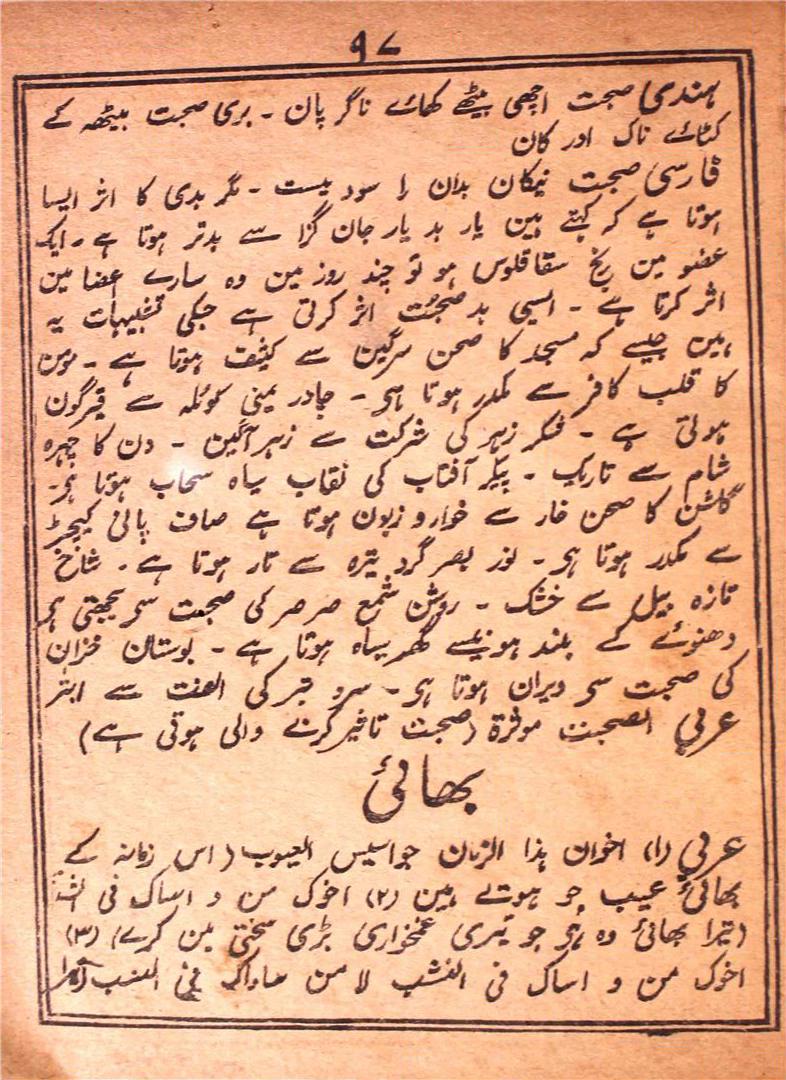 ۹۷
ہندی صحبت اچھی بیٹھے کھائے ناگر پان ۔ بری صحبت بیٹھہ کے
کٹائے ناک اور کان
فارسی صحبت نیکان بدان را سود نیست ۔ مگر بدی کا اثر ایسا
ہوتا ہے کہ کہتے ہین یار بد یار جان گزا سے بدتر ہوتا ہے ۔ ایک
عضو مین رنج سقاقلوس ہو تو چند روز مین وہ سارے اعضا مین
اثر کرتا ہے ۔ ایسی بد صحبت اثر کرتی ہے جسکی تشبیہات یہ
ہین جیسے کہ مسجد کا صحن سرگین سے کثیف ہوتا ہے ۔ مومن
کا قلب کافر سے مکدر ہوتا ہی ۔ چادر یمنی کوئلہ سے قیرگون
ہوتی ہے ۔ شکر زہر کی شرکت سے زہر آگین ۔ دن کا چہرہ
شام سے تاریک ۔ پیکر آفتاب کی نقاب سیاہ سحاب ہوتا ہی۔
گلشن کا صحن خار سے خوار و زبون ہوتا ہے صاف پانی کیچڑ
سے مکدر ہوتا ہی ۔ نور بصر گرد تیرہ سے تار ہوتا ہے ۔ شاخ
تازہ بیل سے خشک ۔ روشن شمع صرصر کی صحبت سی بجھتی ہی
دھنوئے کے بلند ہونیسے گھر سیاہ ہوتا ہے ۔ بوستان خزان
کی صحبت سی ویران ہوتا ہی ۔ سرد تبر کی الفت سے ابتر
عربی الصحبت موثرۃ (صحبت تاثیر کرنے والی ہوتی ہے)
بھائی
عربی (۱) اخوان ہذا الزمان جواسیس العیوب (اس زمانہ کے
بھائی عیب جو ہوتے ہین (۲) اخوک من و اساک فی
(تیرا بھائی وہ ہی جو تیری غمخواری بڑی سختی مین کرے) (۳)
اخوک من و اساک فی النشب لا من ساواک فی النسب